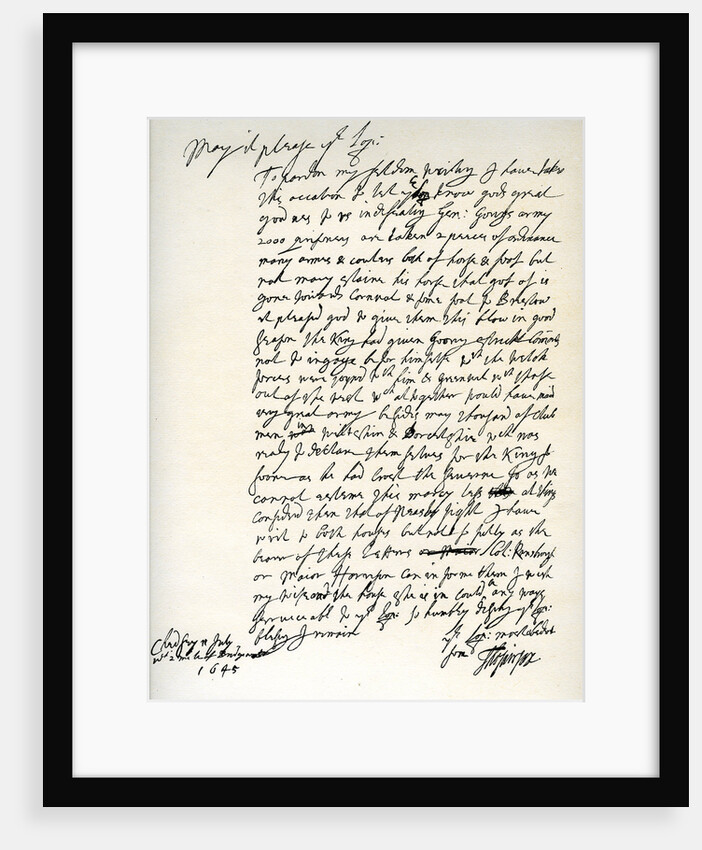 May it please yr Lop:
To pardon my seldom writing I have taken
this occation to let you know gods great
goodnes to us in defeating Gen: Gorings army
2000 prisoners are taken 2 peeces of ordinance
many armes & coulers both of horse & foot but
not many slaine his horse that got of is
gone towards Cornwal & some foot to Brestow
it pleased god to give them this blow in good
season the King had given Goring strickt
not to ingage befor himselfe wth the Welch
forces were joyned wth him & Greenvil wth those
out of the west wch altogether would have mad
very great army besides many thousand of Club
men in Wiltshire & Dorcetshire wch was
ready to declare themselves for the King so
soone as he had the so as we
cannot esteeme this mercy less all things
considerd then that of Naseby fight I have
writ to both houses but not so fully as the
bearer of these letters Col: Rainsbrough
or Maior Harrison can informe them I wish
my wife and the house she is in could any way
serviceable to yr Lop: So humbly yr Lop:
blessing I remain
yr Lop: most obedient
sonn
Tho: Fairfax
Chedsey 11 July
wth 2 miles of Bridgwater
1645